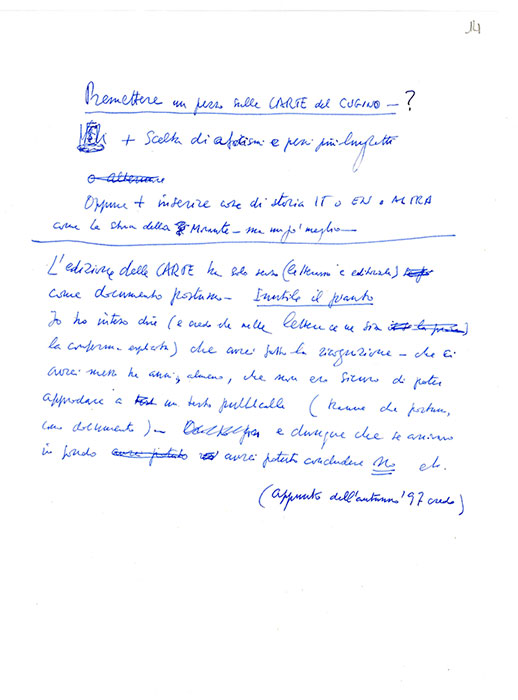 14
Premettere un pezzo sulle CARTE del CUGINO — ?
+ Scelta di aforismi e pezzi più lunghetti
o alternare
Oppure + inserire cose di storia IT o EN o ALTRA
come la storia della Morante — ma un po' meglio —
L'edizione delle CARTE ha solo senso (letterario e editoriale)
come documento postumo — Inutile il pianto
Io ho inteso dire (e credo che nelle lettere ce ne sia
la conferma esplicita) che avrei fatto la ricognizione — che ci
avrei messo tre anni, almeno, che non ero sicuro di poter
approdare a un testo pubblicabile (tranne che postumo,
come documento) — e dunque che se arrivavo
in fondo avrei potuto concludere No etc.
(appunto dell'autunno '97 credo)